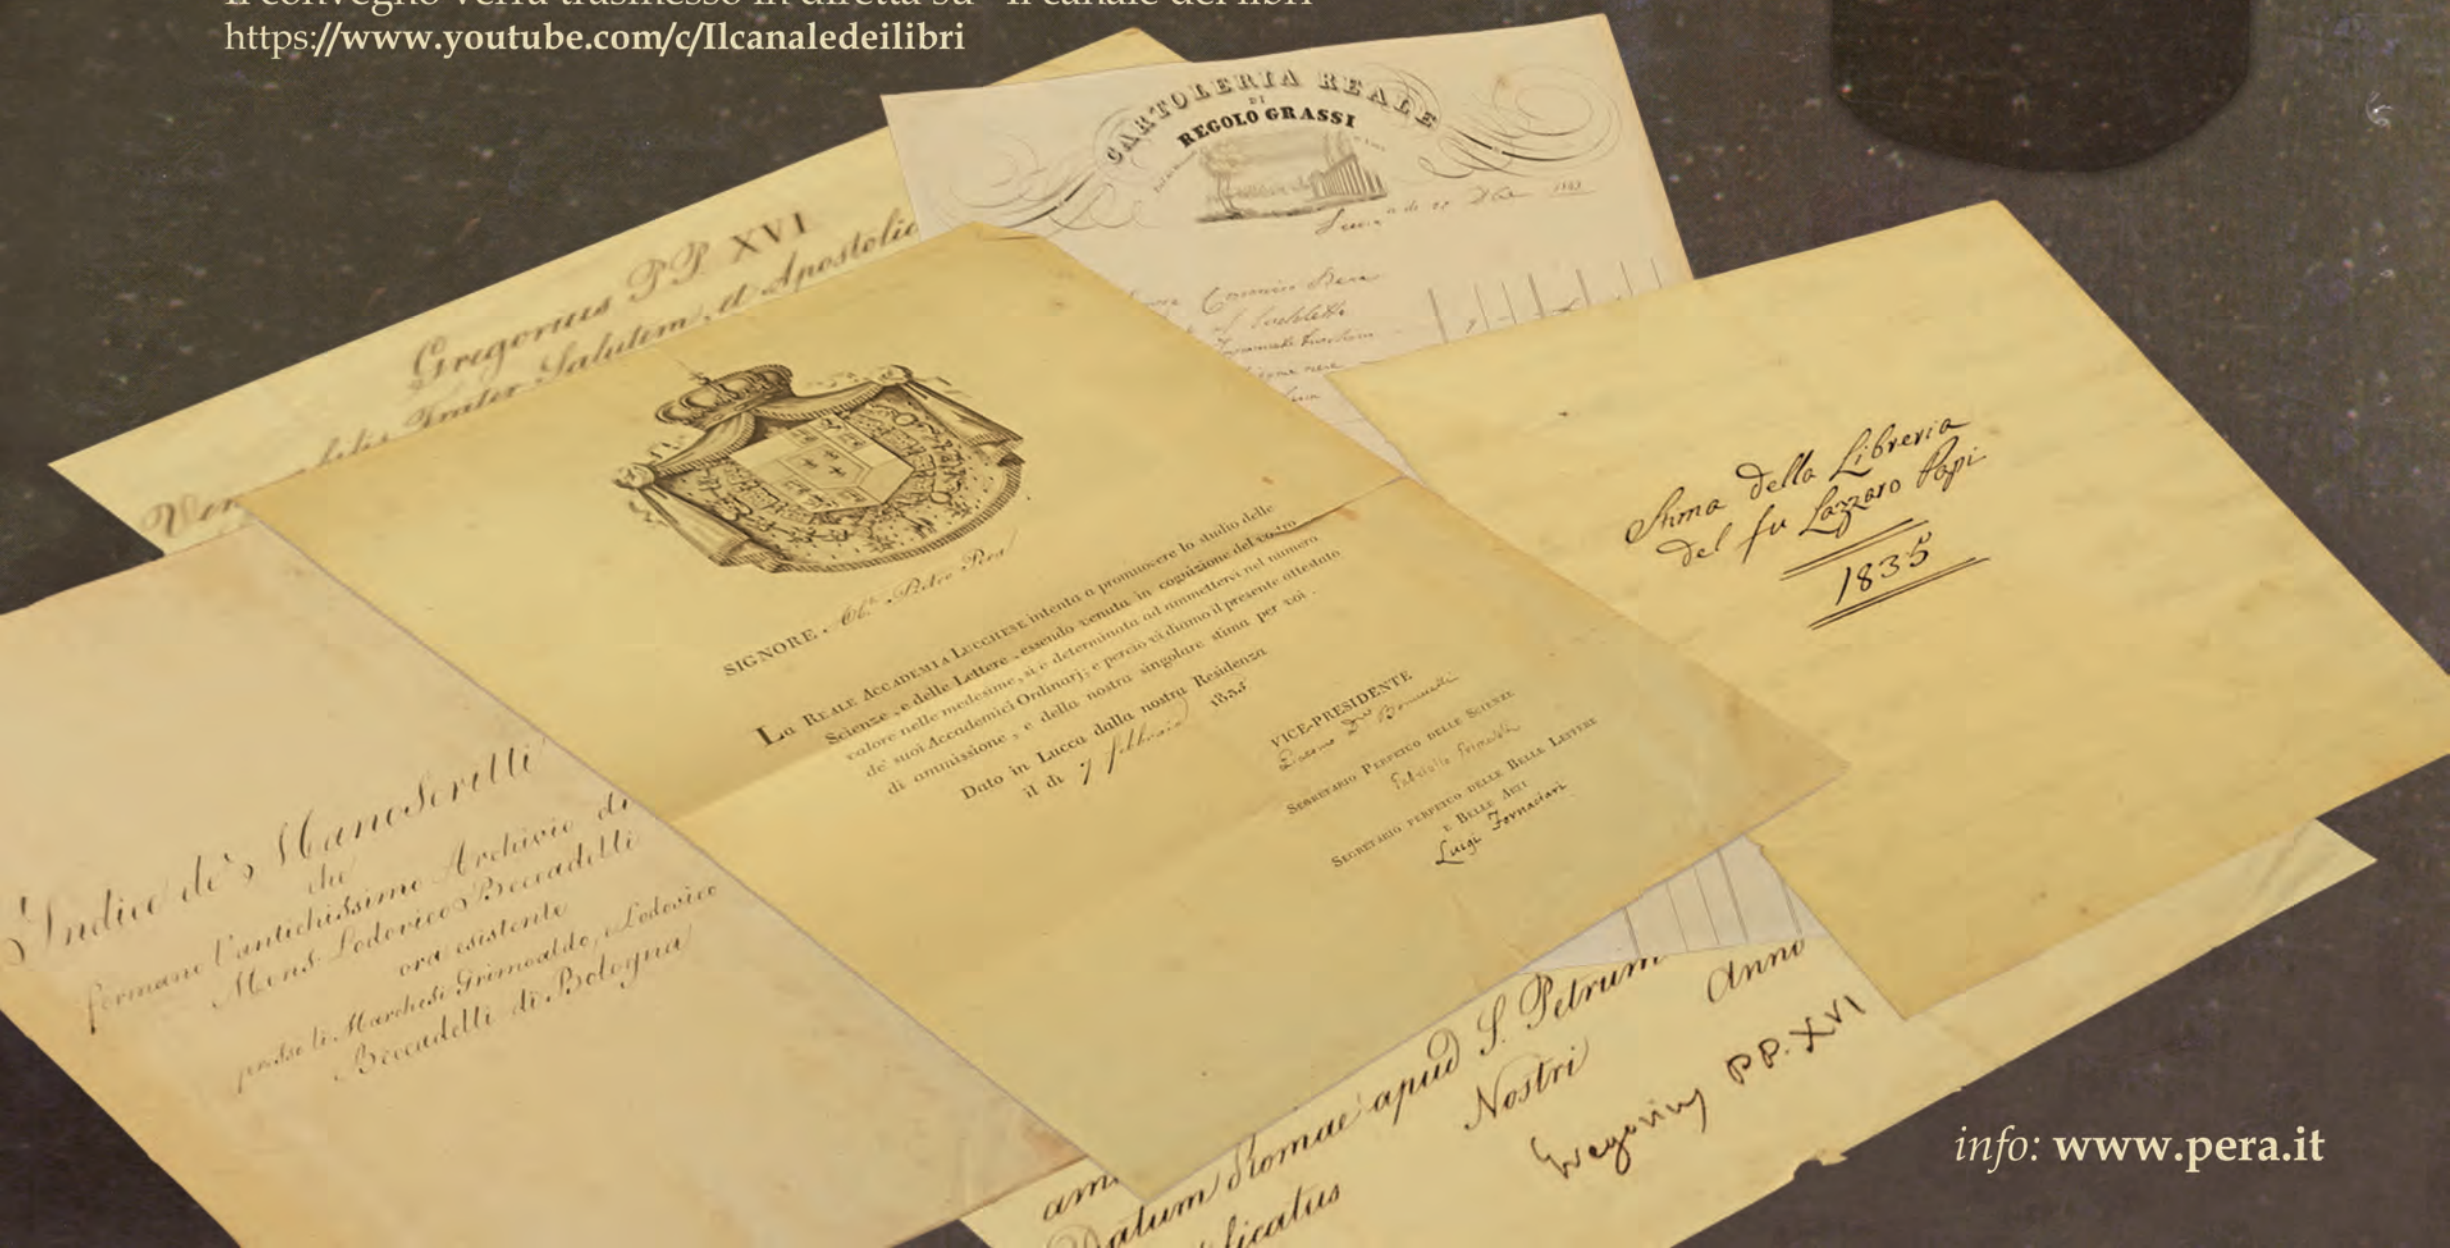 Il convegno verrà trasmesso in diretta su "Il canale dei libri"
https://www.youtube.com/c/Ilcanaledeilibri
CARTOLERIA REALE
DI
REGOLO GRASSI
Gregorius PP. XVI
Frater Salutem, et Apostolic
Ven
SIGNORE Pietro Pera
La REALE ACCADEMIA LUCCHESE intenta a promuovere lo studio delle
Scienze, e delle Lettere, essendo venuta in cognizione del vostro
valore nelle medesime, si è determinata ad ammettervi nel numero
de' suoi Accademici Ordinarj; e perciò vi diamo il presente attestato
di ammissione, e della nostra singolare stima per voi.
Dato in Lucca dalla nostra Residenza
il di 7 febbraio
VICE-PRESIDENTE
SEGRETARIO PERPETUO DELLE SCIENZE
SEGRETARIO PERPETUO DELLE BELLE LETTERE
E BELLE ARTI
Luigi Fornaciari
Stima della Libreria
del fu Lazzaro Papi
1835
Indice de' ManoScritti
che
formano l'antichissimo Archivio di
Mons. Lodovico Beccadelli
ora esistente
presso li Marchesi Grimoaldo, e Lodovico
Beccadelli di Bologna
Datum Romae apud S. Petrum
Nostri Anno
licatus
Gregorius PP. XVI
info: www.pera.it